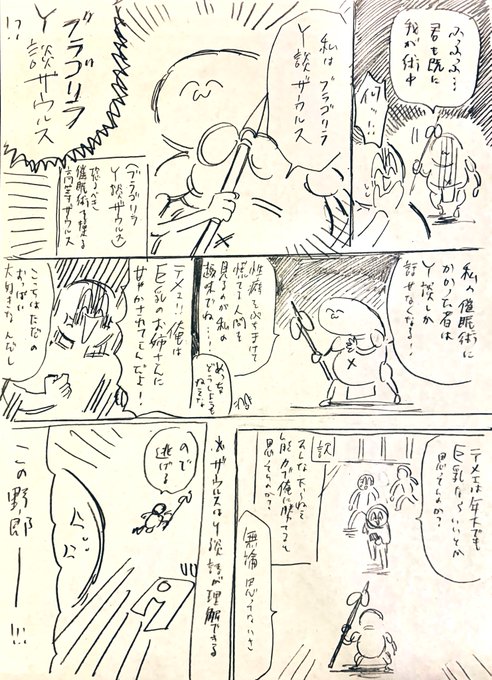 ふふふ…
君も既に
我が術中
何っ…!
私はブラゴリラ
Y談ザウルス
ブラゴリラ
Y談ザウルス
!?
(ブラゴリラ
Y談ザウルス)
恐るべき
催眠術を操る
高等ザウルス
私の催眠術に
かかった者は
Y談しか
話せなくなる…!
性癖をぶちまけて
慌てる人間を
見るのが私の
趣味でね…
めっちゃ
どうしようも
ねえな
テメェ!!俺は
巨乳のお姉さんに
甘やかされてえんだよ!
こちはただの
おっぱい
大好きなんだし
テメェは年上でも
巨乳ならいいとか
思ってんのか?
訳
そんな下らねえ
能力で俺に勝てると
思ってんのか?
無論思ってないさ
※ザウルスはY談語が理解できる
ので
逃げる
この野郎ーー!!!